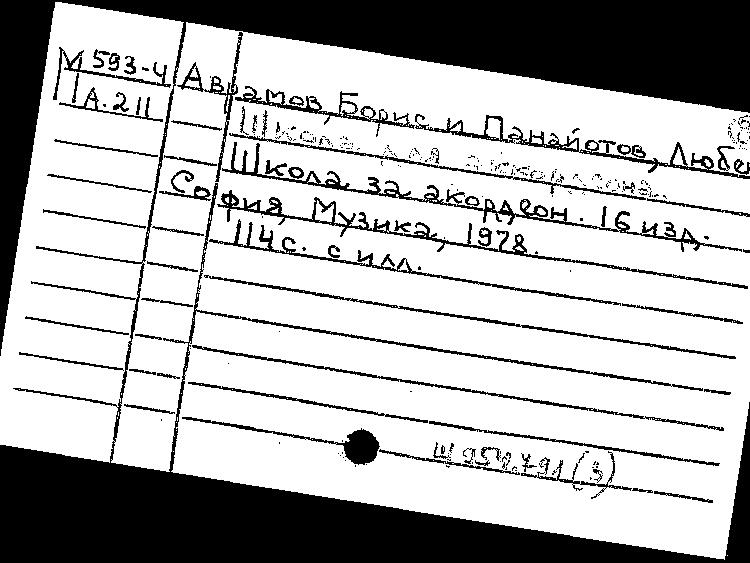 М 593-4 Аврамов, Борис и Панайотов, Любен
IA.211
Школа для аккордеона.
Школа за акордеон. 16 изд.
София, Музика, 1978.
114 с. с илл.